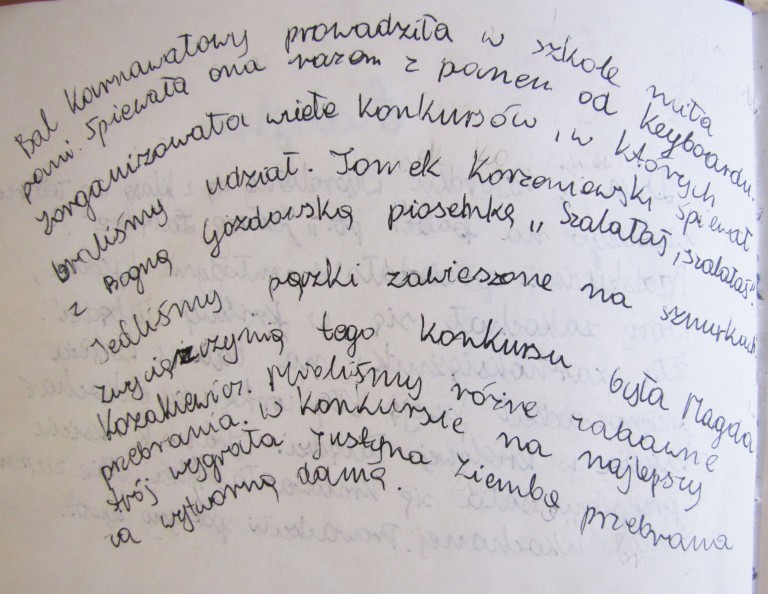 Bal Karnawałowy prowadziła w szkole miła
pani. Śpiewała ona razem z panem od Keyboardu.
Zorganizowała wiele konkursów, w których
braliśmy udział. Tomek Korzeniowski śpiewał
z Bogną Gozdowską piosenkę "Szalałaś, szalałaś".
Jedliśmy pączki zawieszone na sznurkach
zwyciężczynią tego konkursu była Magda
Kozakiewicz. Mieliśmy różne zabawne
przebrania. W konkursie na najlepszy
strój wygrała Justyna Ziemba przebrana
za wytworną damą.